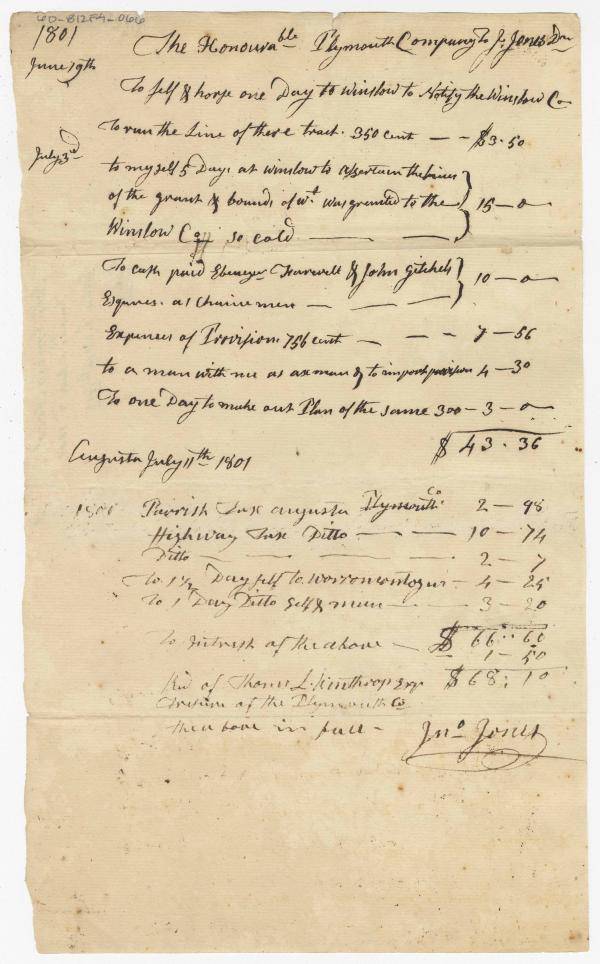 6D-B12F4-066
1801
The Honourable Plymouth Company To Jno Jones Dr
June 19th
To Self & horse one Day to Winslow to Notify the Winslow Co
To run the Line of there tract. 350 cent — - $3.50
July 3d
to myself 5 Days at Winslow to assertain the Lines
of the grant & bounds of wt was granted to the } 15 — 0
Winslow Co so cald — —
To cash paid Ebenezer Farwell & John Gitchel } 10 — 0
Esquires. as Chainemen — — —
Expences of Provision. 756 cent — - — 7 — 56
to a man with me as axman & to 4 — 30
To one Day to make out Plan of the same 300 — 3 — 0
$ 43.36
Augusta July 11th 1801
Parrish Tax augusta Plymouth Co 2 — 98
Highway Tax Ditto — — — 10 — 74
Ditto — — — — 2 — 7
To 1 1/2 Day self to — 4 — 25
To 1 Day Ditto Self & man — — 3 — 20
$ 66..60
To Intrest of the above — — 1 — 50
$ 68.10
Recd of Thomas L. Winthrop Esqr
of the Plymouth Co
the above in full —
Jno Jones